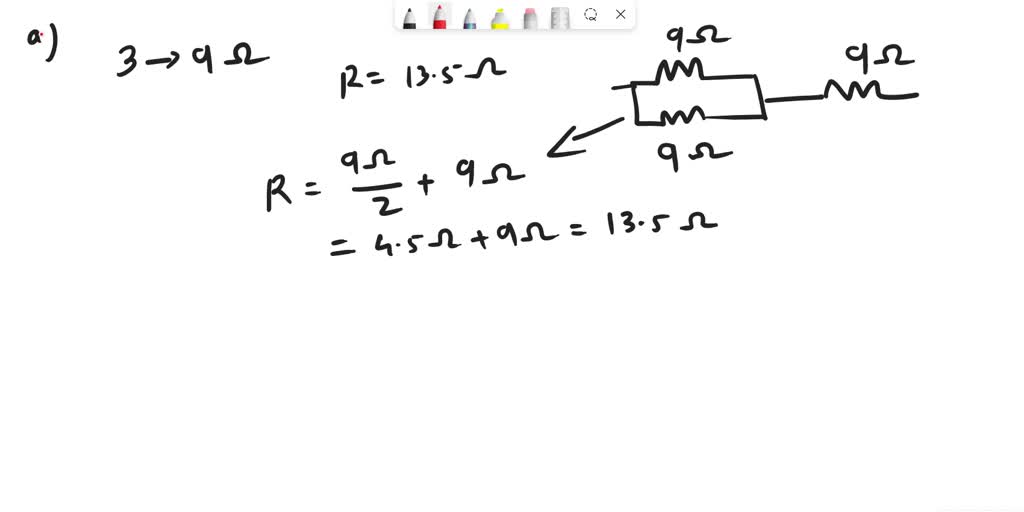 a)
3 → 9 Ω
R = 13.5 Ω
9Ω
9Ω
9Ω
R = 9Ω/2 + 9Ω
= 4.5Ω + 9Ω = 13.5 Ω